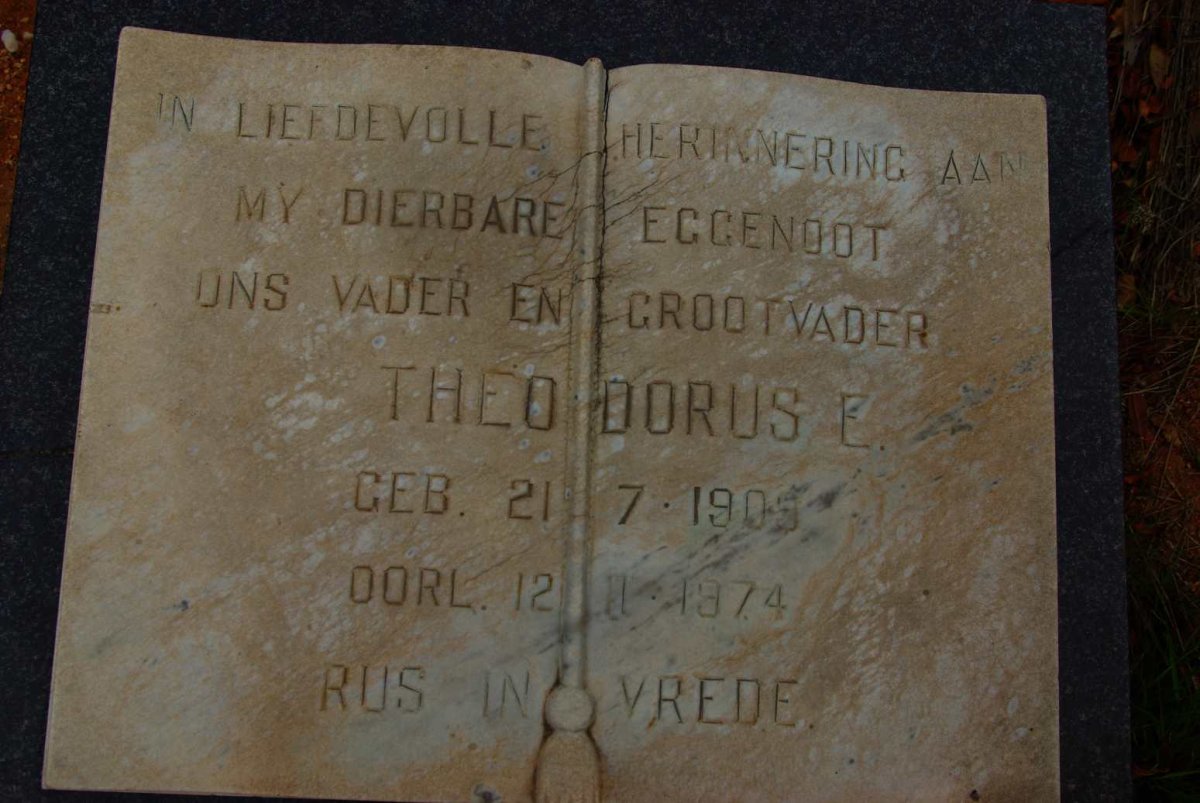 IN LIEFDEVOLLE HERINNERING AAN
MY DIERBARE EGGENOOT
ONS VADER EN GROOTVADER
THEODORUS E.
GEB. 21 · 7 · 1909
OORL. 12 · 11 · 1974
RUS IN VREDE.